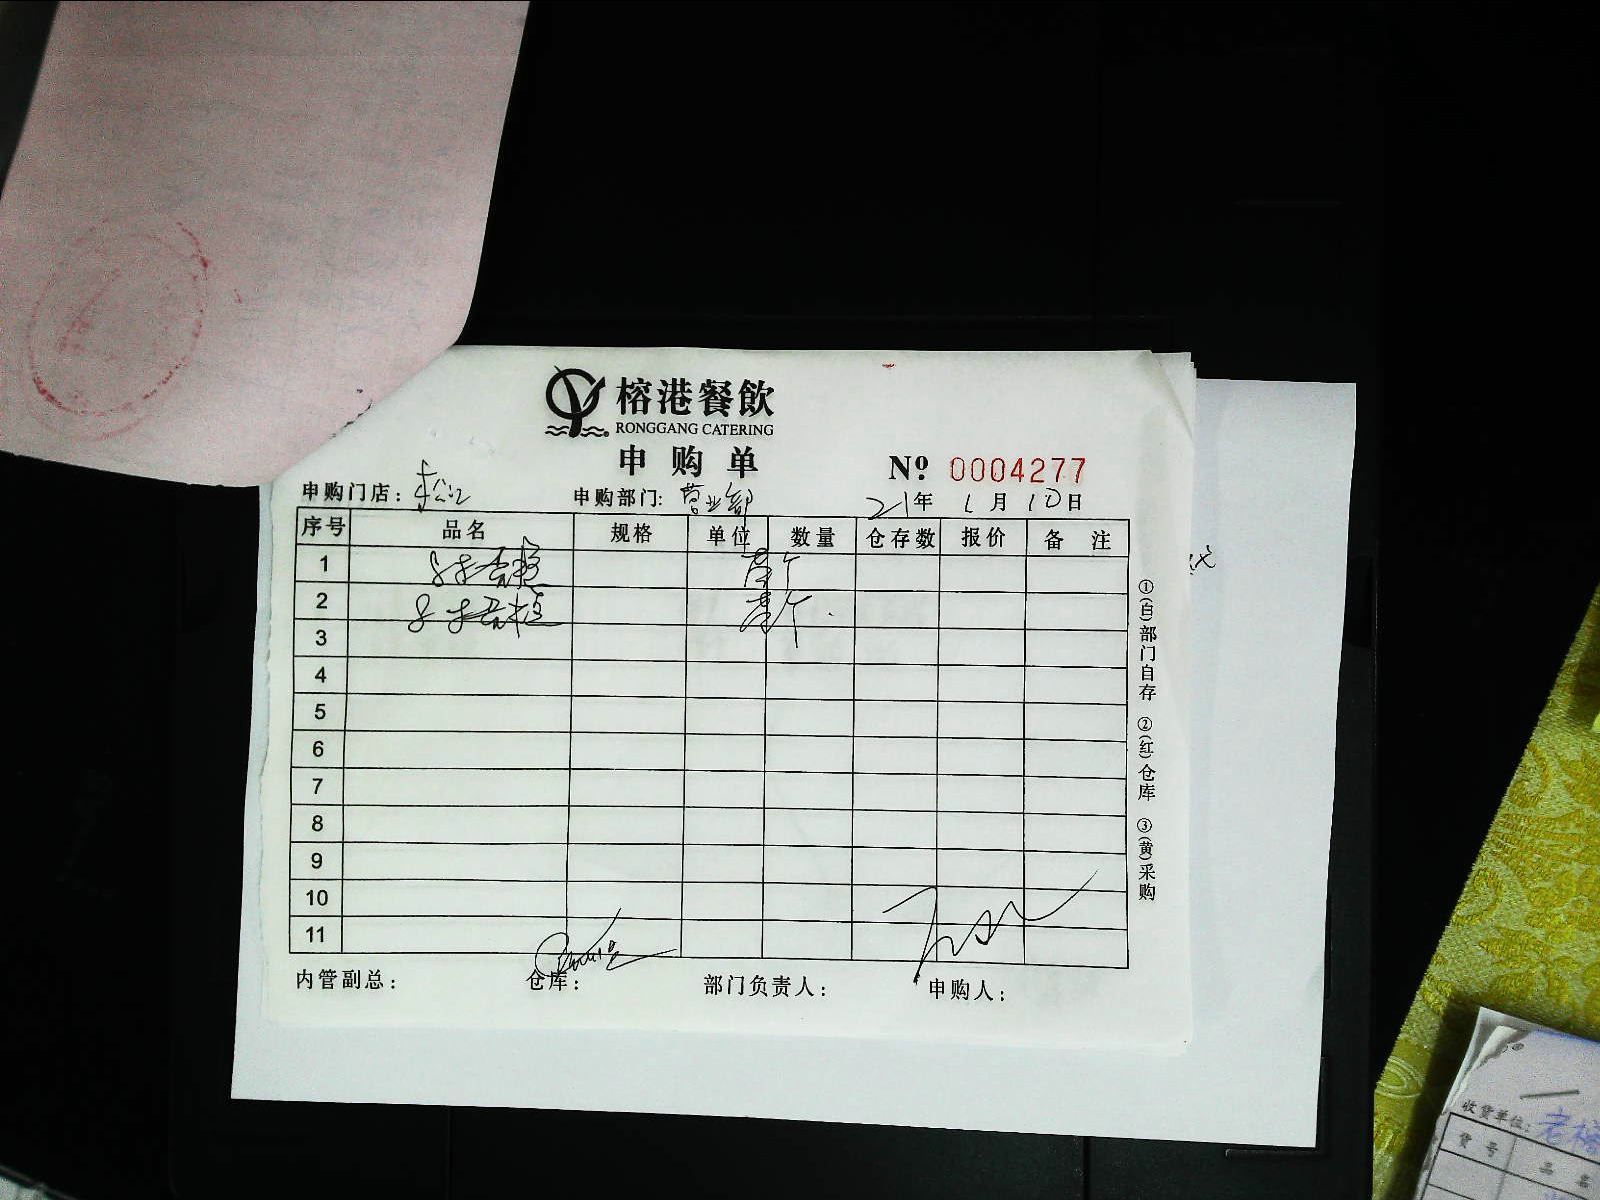 榕港餐飲
RONGGANG CATERING
申购单
№ 0004277
申购门店：松江 申购部门：营业部 21年1月10日
序号 品名 规格 单位 数量 仓存数 报价 备注
1
2
3
4
5
6
7
8
9
10
11
内管副总： 仓库： 部门负责人： 申购人：
①(白)部门自存 ②(红)仓库 ③(黄)采购
收货单位：
货号 品名